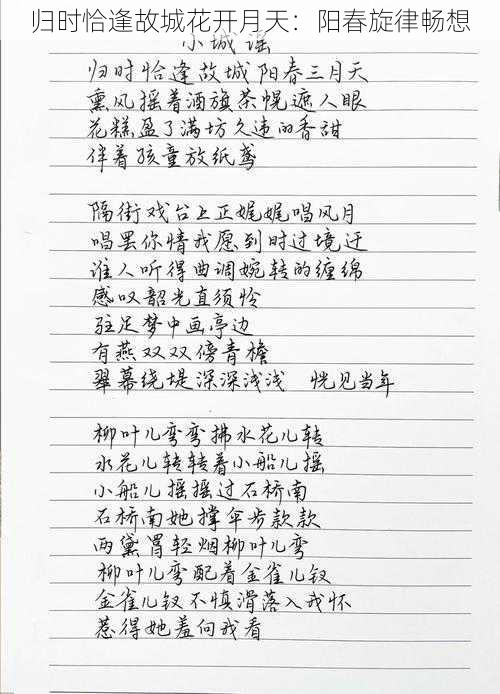 归时恰逢故城花开月天：阳春旋律畅想
小城谣
归时恰逢故城阳春三月天
熏风摇着酒旗茶幌遮人眼
花糕盈了满坊久违的香甜
伴着孩童放纸鸢
隔街戏台上正娓娓唱风月
唱罢你情我愿到时过境迁
谁人听得曲调婉转的缠绵
感叹韶光直须怜
驻足梦中画亭边
有燕双双傍青檐
翠幕绕堤深深浅浅 恍见当年
柳叶儿弯弯拂水花儿转
水花儿转转着小船儿摇
小船儿摇摇过石桥南
石桥南她撑伞步款款
两黛罥轻烟柳叶儿弯
柳叶儿弯配着金雀儿钗
金雀儿钗不慎滑落入我怀
惹得她羞向我看